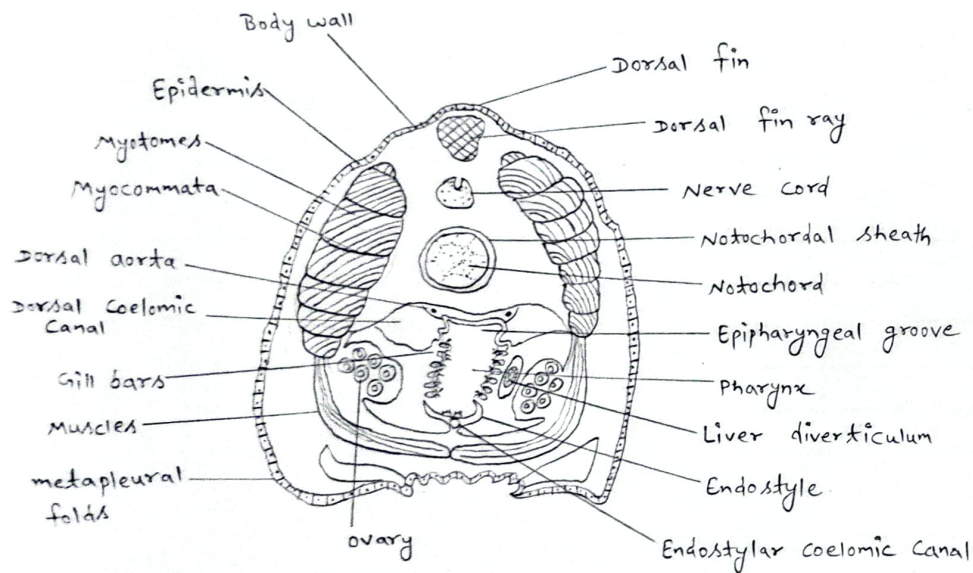 Body wall
Epidermis
Myotomes
Myocommata
Dorsal aorta
Dorsal Coelomic
Canal
Gill bars
Muscles
metapleural
folds
ovary
Dorsal fin
Dorsal fin ray
Nerve cord
Notochordal sheath
Notochord
Epipharyngeal groove
Pharynx
Liver diverticulum
Endostyle
Endostylar Coelomic Canal